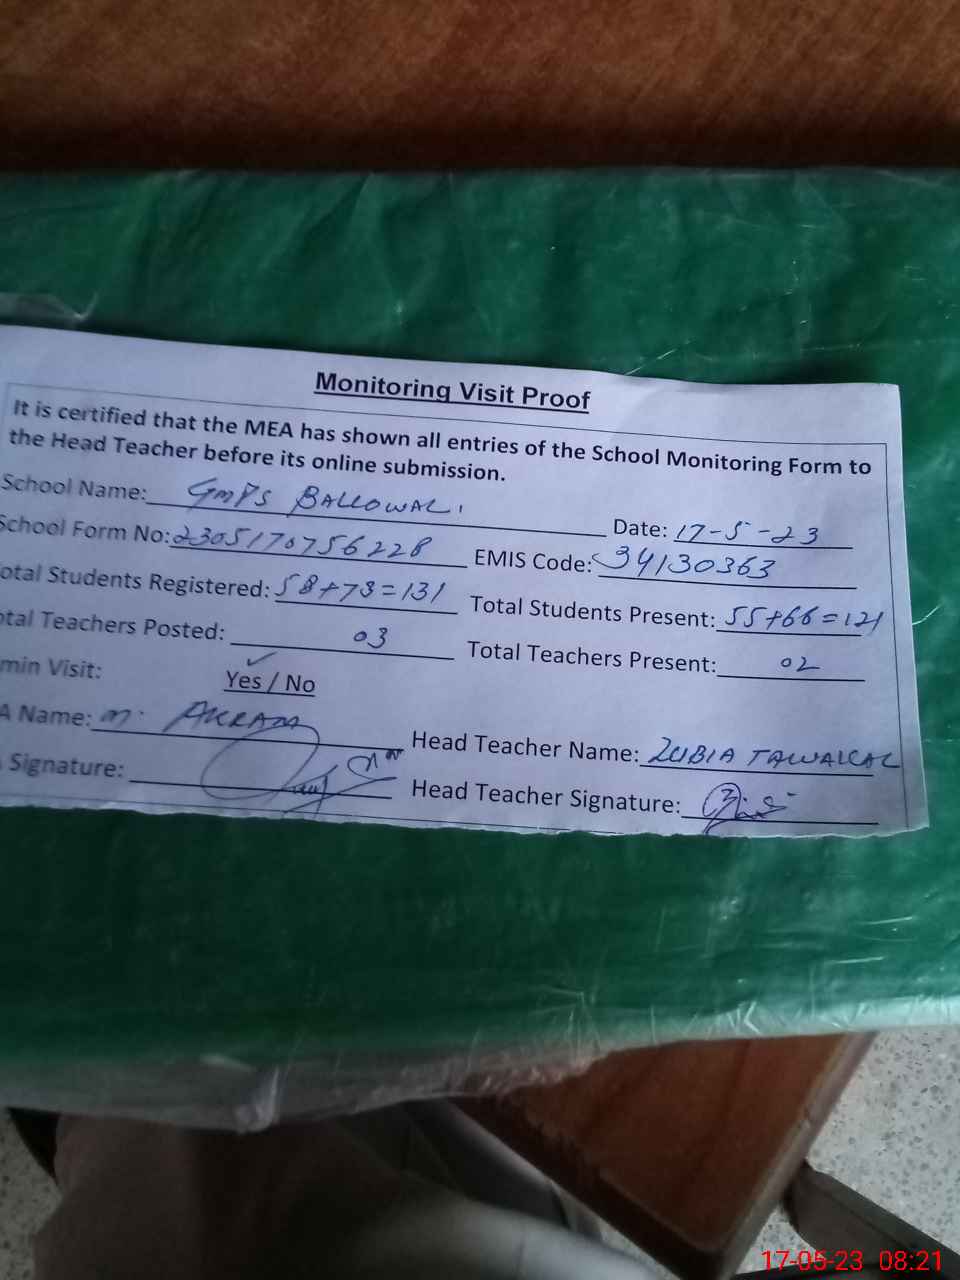 Monitoring Visit Proof
It is certified that the MEA has shown all entries of the School Monitoring Form to
the Head Teacher before its online submission.
School Name: GMPS BALLOWAL.
Date: 17-5-23
School Form No: 2305170756228 EMIS Code: 34130363
otal Students Registered: 58+73=131 Total Students Present: 55+66=121
otal Teachers Posted: 03 Total Teachers Present: 02
min Visit: Yes / No
A Name: M. AKRAM Head Teacher Name: ZUBIA TAWAKAL
Signature: Head Teacher Signature:
17-05-23 08:21